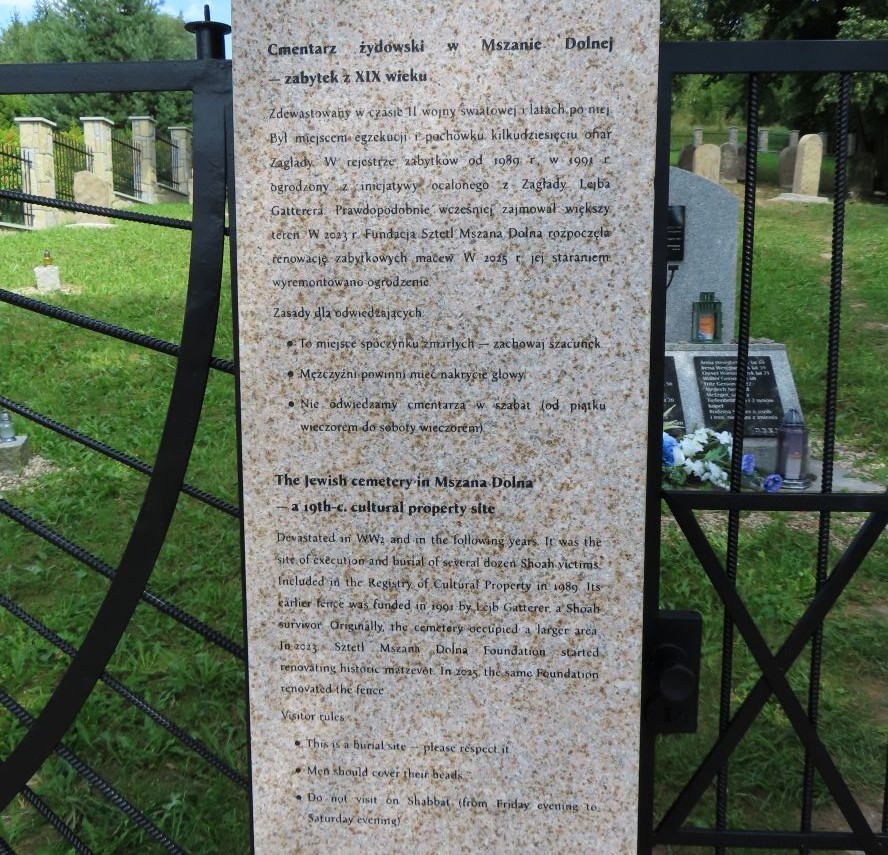 Cmentarz żydowski w Mszanie Dolnej
– zabytek z XIX wieku
Zdewastowany w czasie II wojny światowej i latach po niej.
Był miejscem egzekucji i pochówku kilkudziesięciu ofiar
Zagłady. W rejestrze zabytków od 1989 r., w 1991 r.
ogrodzony z inicjatywy ocalonego z Zagłady Lejba
Gatterera. Prawdopodobnie wcześniej zajmował większy
teren. W 2023 r. Fundacja Sztetl Mszana Dolna rozpoczęła
renowację zabytkowych macew. W 2025 r. jej staraniem
wyremontowano ogrodzenie.
Zasady dla odwiedzających:
• To miejsce spoczynku zmarłych — zachowaj szacunek.
• Mężczyźni powinni mieć nakrycie głowy.
• Nie odwiedzamy cmentarza w szabat (od piątku
wieczorem do soboty wieczorem).
The Jewish cemetery in Mszana Dolna
– a 19th-c. cultural property site
Devastated in WW2 and in the following years. It was the
site of execution and burial of several dozen Shoah victims.
Included in the Registry of Cultural Property in 1989. Its
earlier fence was funded in 1991 by Lejb Gatterer, a Shoah
survivor. Originally, the cemetery occupied a larger area.
In 2023, Sztetl Mszana Dolna Foundation started
renovating historic matzevot. In 2025, the same Foundation
renovated the fence.
Visitor rules:
• This is a burial site — please respect it.
• Men should cover their heads.
• Do not visit on Shabbat (from Friday evening to
Saturday evening).